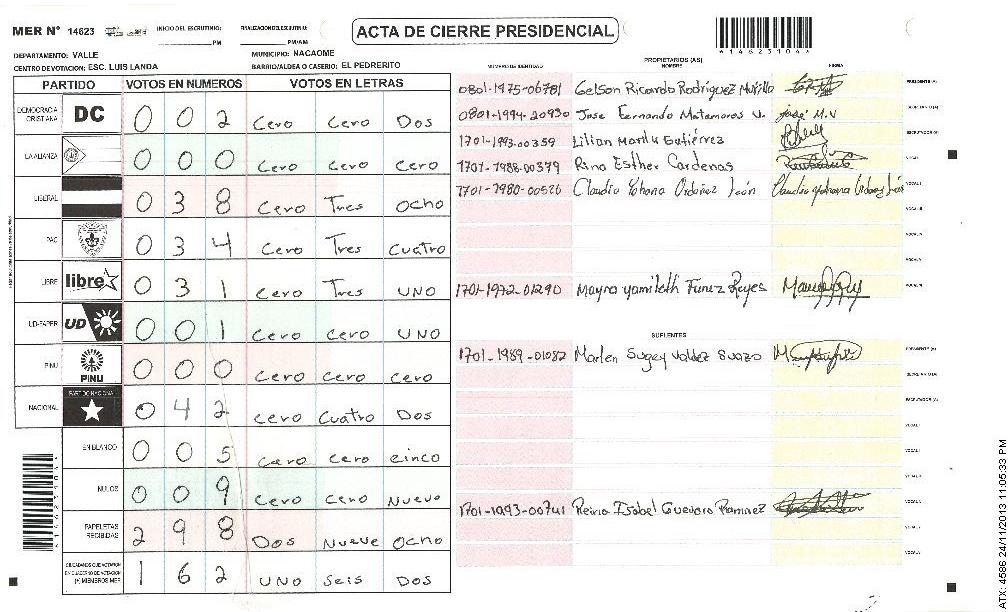 MER N° 14623
INICIO DEL ESCRUTINIO: PM
FINALIZACION DEL ESCRUTINIO: PM/AM
ACTA DE CIERRE PRESIDENCIAL
DEPARTAMENTO: VALLE
MUNICIPIO: NACAOME
CENTRO DE VOTACION: ESC. LUIS LANDA
BARRIO/ALDEA O CASERIO: EL PEDRERITO
PARTIDO VOTOS EN NUMEROS VOTOS EN LETRAS
DEMOCRACIA CRISTIANA DC 0 0 2 Cero Cero Dos
LA ALIANZA 0 0 0 Cero Cero Cero
LIBERAL 0 3 8 Cero Tres Ocho
PAC 0 3 4 Cero Tres Cuatro
LIBRE libre 0 3 1 Cero Tres UNO
UD-FAPER UD 0 0 1 Cero Cero UNO
PINU PINU 0 0 0 Cero Cero Cero
NACIONAL PARTIDO NACIONAL 0 4 2 Cero Cuatro Dos
EN BLANCO 0 0 5 Cero Cero Cinco
NULOS 0 0 9 Cero Cero Nueve
PAPELETAS RECIBIDAS 2 9 8 Dos Nueve Ocho
CIUDADANOS QUE VOTARON EN CUADERNO DE VOTACION (+) MIEMBROS MER 1 6 2 UNO Seis Dos
PROPIETARIOS (AS)
NUMERO DE IDENTIDAD NOMBRE FIRMA
0801-1975-06781 Gelson Ricardo Rodriguez Murillo PRESIDENTE (A)
0801-1994-20930 Jose Fernando Matamoros V. José M.V SECRETARIO (A)
1701-1993-00359 Lilian Marily Gutiérrez ESCRUTADOR (A)
1701-1988-00379 Rina Esther Cardenas VOCAL I
1701-1980-00526 Claudia Yohana Ordoñez León VOCAL II
VOCAL III
VOCAL IV
VOCAL V
1701-1972-01290 Mayra Yamileth Funez Reyes
SUPLENTES
1701-1989-01082 Marlen Sugey Valdez Suazo PRESIDENTE (A)
SECRETARIO (A)
ESCRUTADOR (A)
VOCAL I
1701-1993-00741 Reina Isabel Guevara Ramirez
414623104
ATX: 4586 24/11/2013 11:05:33 PM